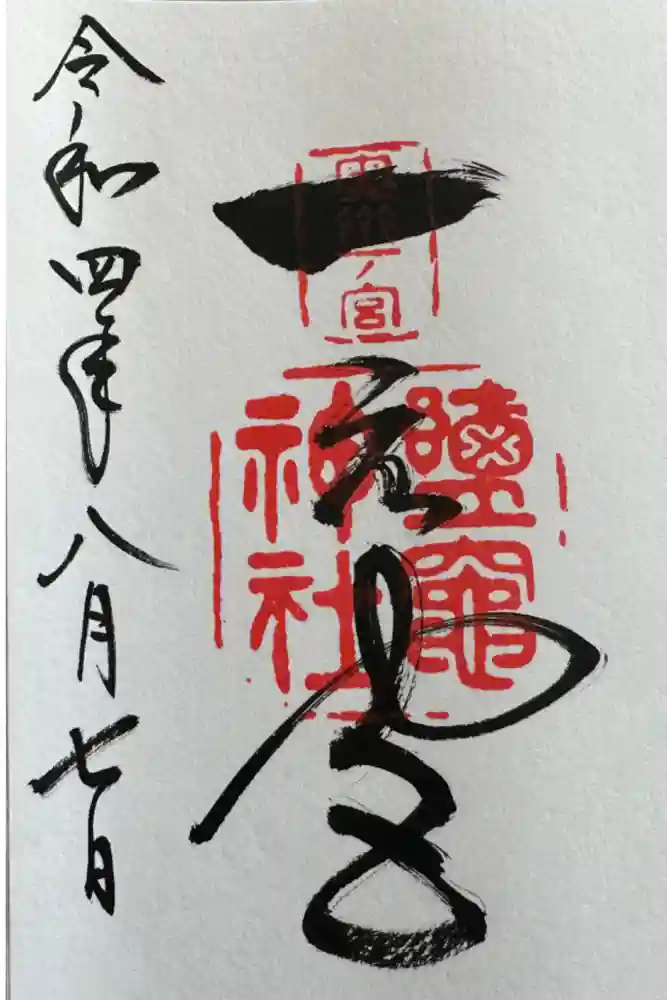 一之宮
一ノ宮
鹽竈
神社
令和四年八月七日